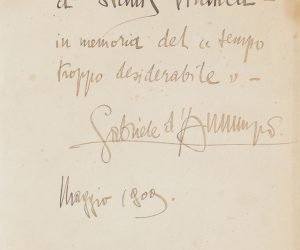 a
in memoria del « tempo
troppo desiderabile » -
Gabriele d'Annunzio.
Maggio 1909.